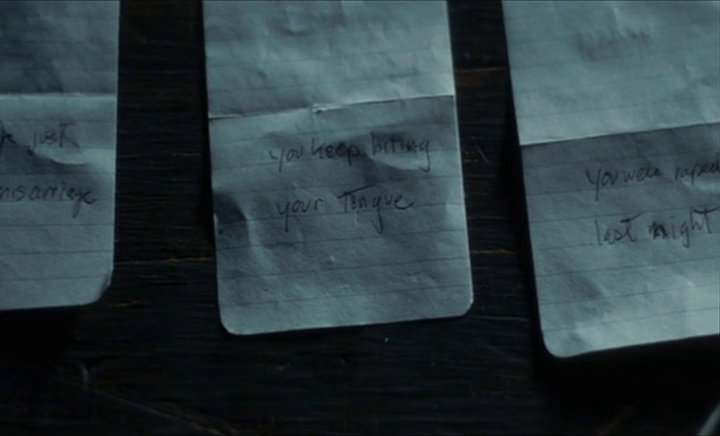 just
miscarriage
you keep biting
your Tongue
you were raped
last night